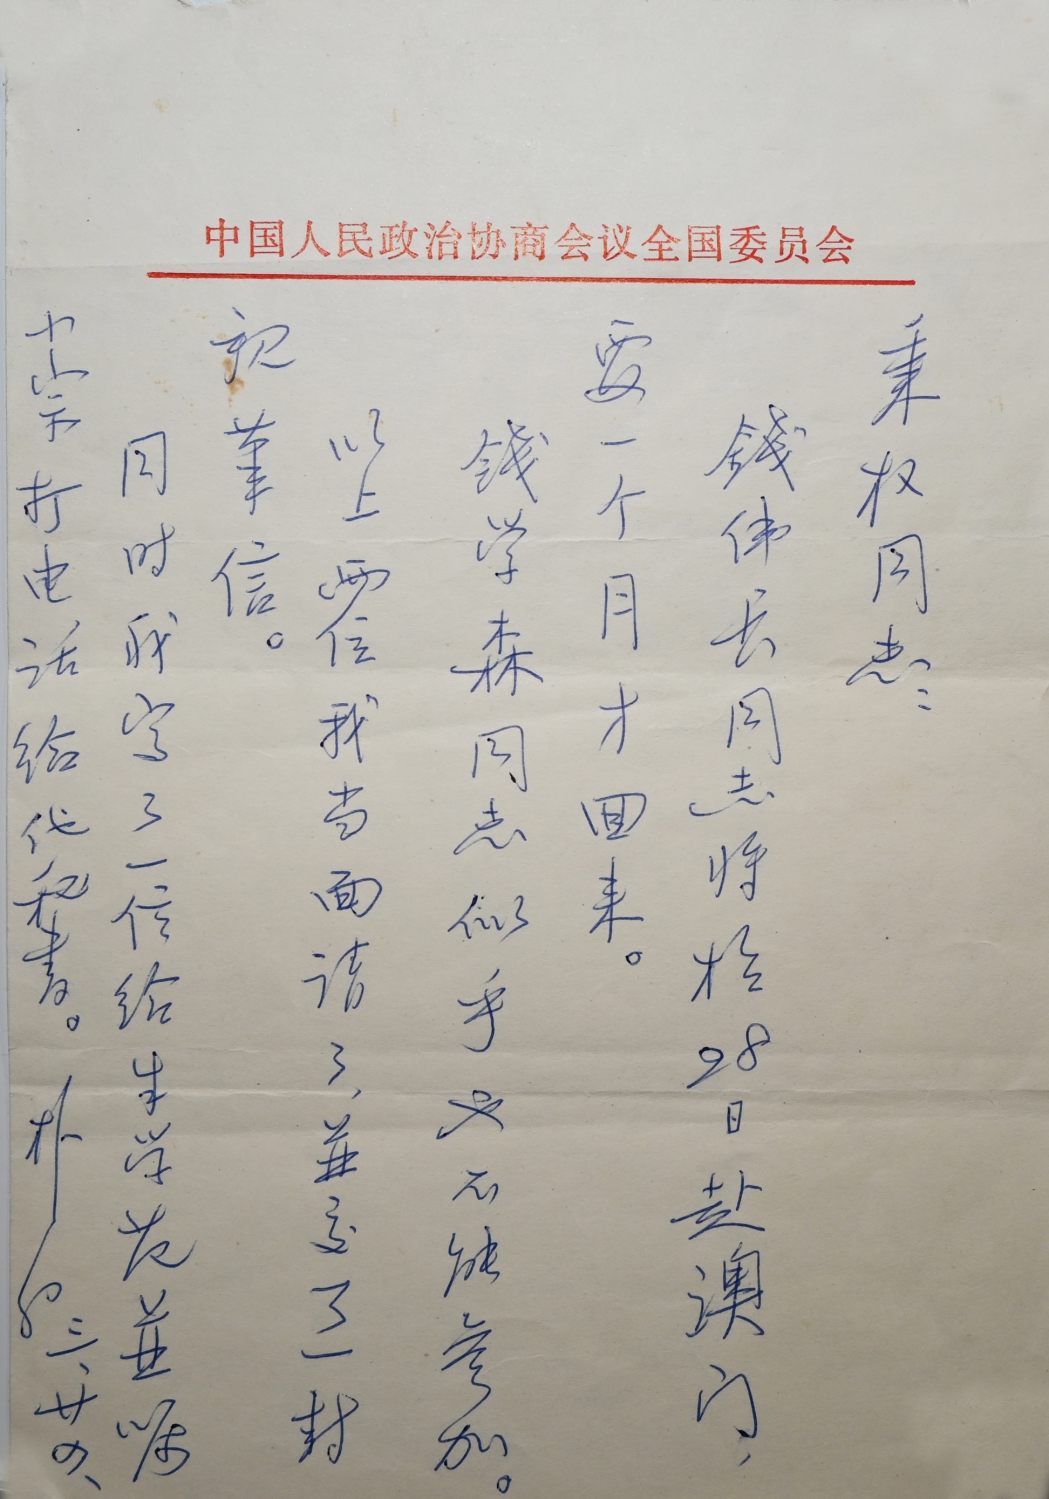 中国人民政治协商会议全国委员会
秉权同志：
錢伟长同志将於28日赴澳门，
要一个月才回来。
錢学森同志似乎也不能参加。
以上两位我当面请了，並交了一封
親筆信。
同时我写了一信给朱学范並嘱
宗打电话给他秘書。朴初 三、廿四、